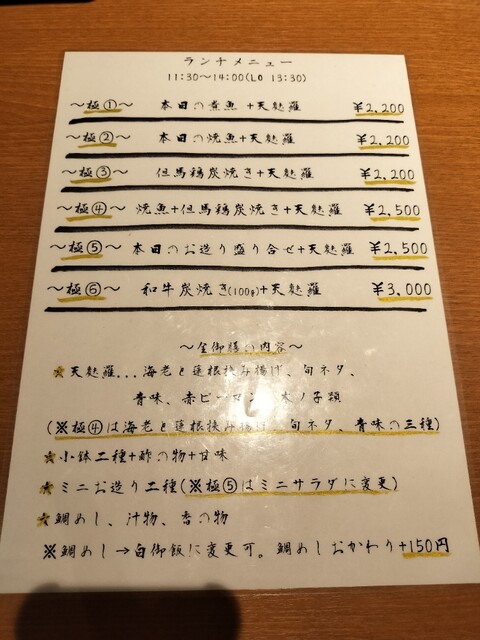 ランチメニュー
11:30〜14:00(LO 13:30)
〜極①〜 本日の煮魚+天麩羅 ¥2,200
〜極②〜 本日の焼魚+天麩羅 ¥2,200
〜極③〜 但馬鶏炭焼き+天麩羅 ¥2,200
〜極④〜 焼魚+但馬鶏炭焼き+天麩羅 ¥2,500
〜極⑤〜 本日のお造り盛り合せ+天麩羅 ¥2,500
〜極⑥〜 和牛炭焼き(100g)+天麩羅 ¥3,000
〜全御膳の内容〜
★天麩羅...海老と蓮根挟み揚げ、旬ネタ、
青味、赤ピーマン、木ノ子類
(※極④は海老と蓮根挟み揚げ、旬ネタ、青味の三種)
★小鉢二種+酢の物+甘味
★ミニお造り二種(※極⑤はミニサラダに変更)
★鯛めし、汁物、香の物
※鯛めし→白御飯に変更可。鯛めしおかわり+150円